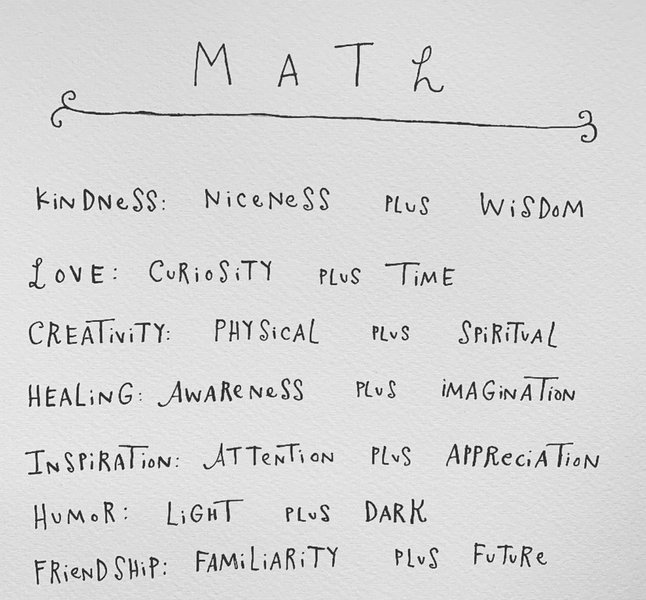 MATH
KiNDNeSS: NiCeNeSS PLuS WiSDoM
LOVE: CuRioSiTY PLuS TiME
CREATiViTY: PHYSiCAL PLuS SPiRiTuAL
HEALiNG: AWAReNeSS PLuS iMAGiNATiON
INSPiRATiON: ATTeNTiON PLuS APPReciATiON
HuMoR: LiGHT PLuS DARK
FRieNDSHiP: FAMiLiARiTY PLuS FuTuRe